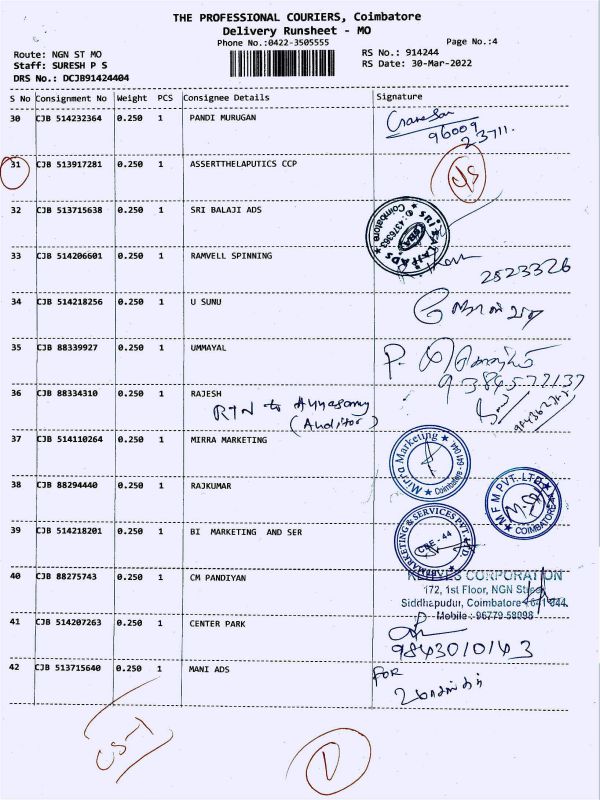 THE PROFESSIONAL COURIERS, Coimbatore
Delivery Runsheet - MO
Phone No.:0422-3505555
Page No.:4
Route: NGN ST MO
Staff: SURESH P S
DRS No.: DCJB91424404
RS No.: 914244
RS Date: 30-Mar-2022
S No Consignment No Weight PCS Consignee Details Signature
30 CJB 514232364 0.250 1 PANDI MURUGAN
96009
23711.
31 CJB 513917281 0.250 1 ASSERTTHELAPUTICS CCP
32 CJB 513715638 0.250 1 SRI BALAJI ADS
SRI BALAJI ADS
Coimbatore
33 CJB 514206601 0.250 1 RAMVELL SPINNING
2523326
34 CJB 514218256 0.250 1 U SUNU
35 CJB 88339927 0.250 1 UMMAYAL
36 CJB 88334310 0.250 1 RAJESH
RTN to Ayyasamy
(Auditor)
37 CJB 514110264 0.250 1 MIRRA MARKETING
Mirra Marketing
Coimbatore
38 CJB 88294440 0.250 1 RAJKUMAR
M F M PVT. LTD
COIMBATORE
39 CJB 514218201 0.250 1 BI MARKETING AND SER
MARKETING & SERVICES PVT. LTD.
CBE - 44
40 CJB 88275743 0.250 1 CM PANDIYAN
CORPORATION
172, 1st Floor, NGN Street
Siddhapudur, Coimbatore - 641 044.
Mobile: 96779 58098
41 CJB 514207263 0.250 1 CENTER PARK
9843010143
42 CJB 513715640 0.250 1 MANI ADS
FOR